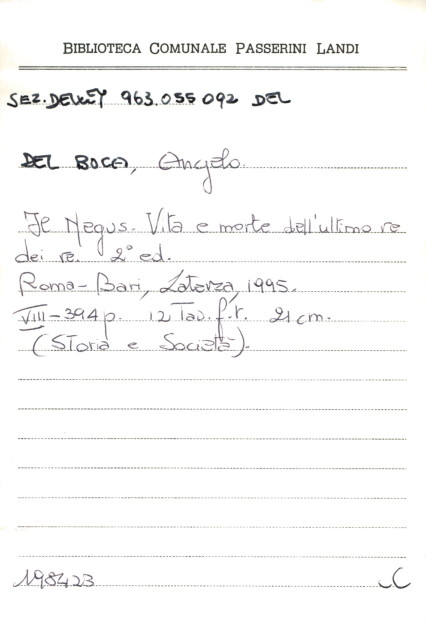 BIBLIOTECA COMUNALE PASSERINI LANDI
SEZ. DEWEY 963.055 092 DEL
DEL BOCA, Angelo
Il Negus. Vita e morte dell'ultimo re
dei re. 2° ed.
Roma-Bari, Laterza, 1995.
VIII-394 p. 12 Tav. f.t. 21 cm.
(Storia e Società).
198423